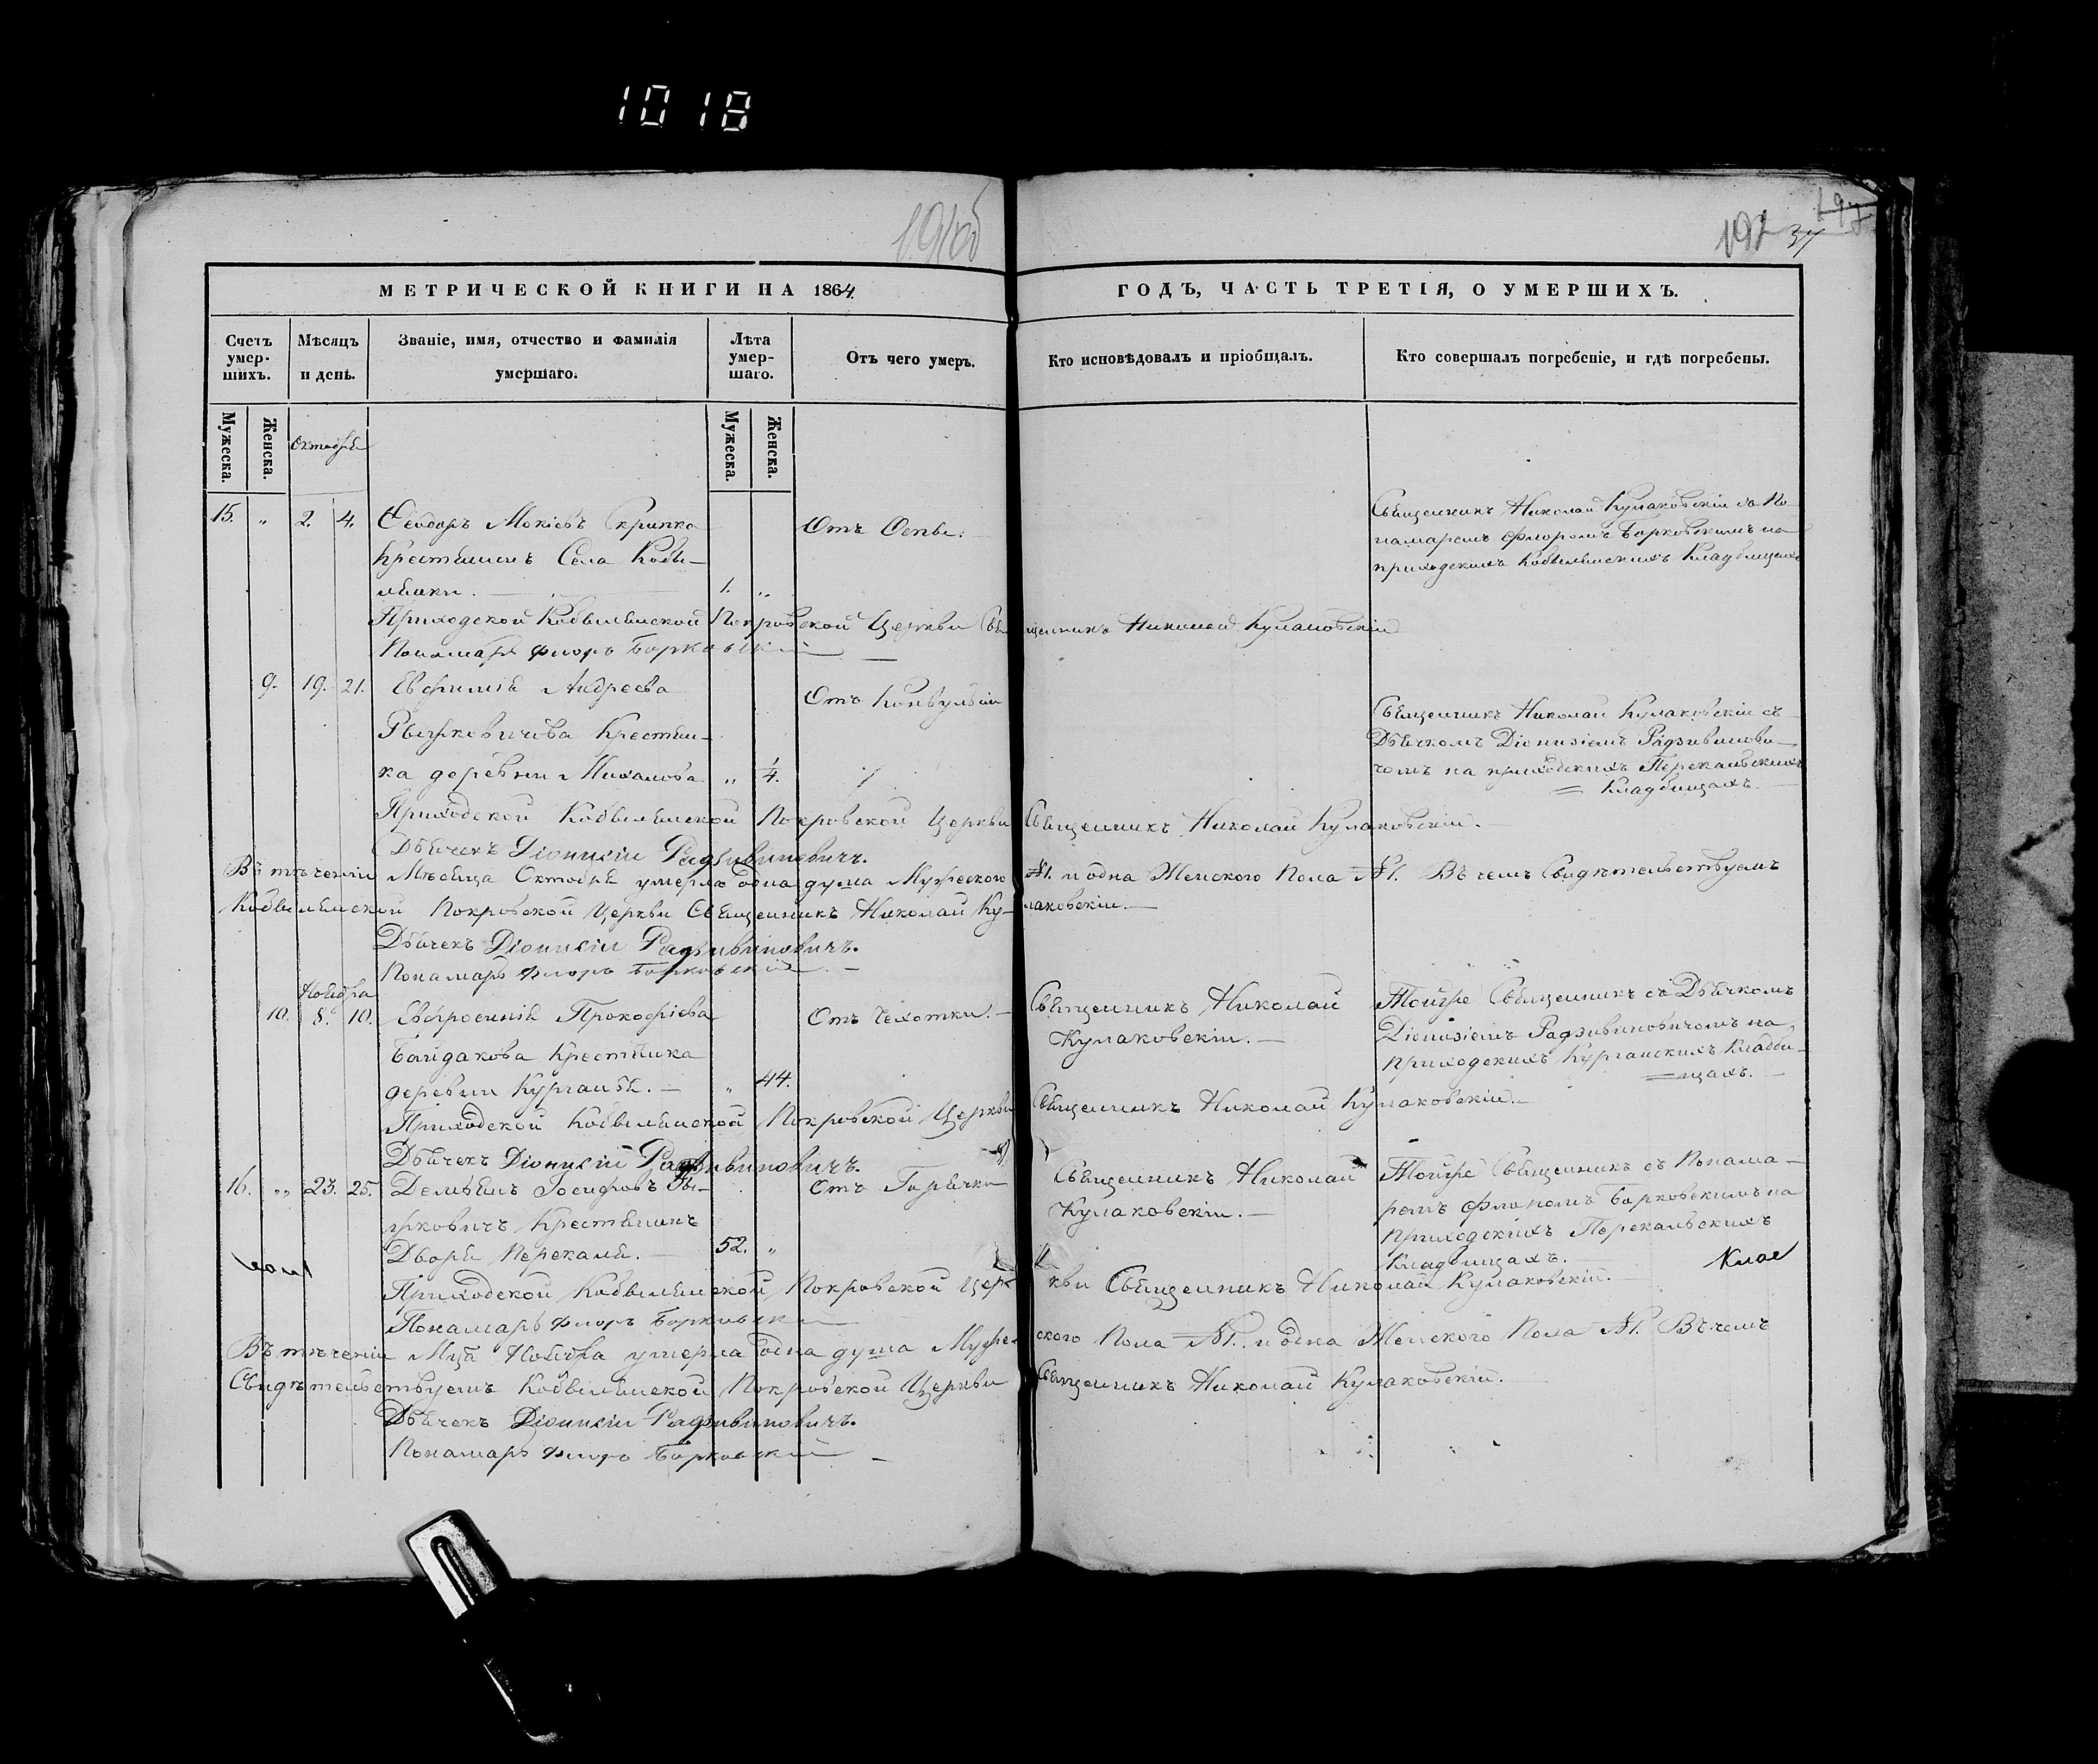 1018
192
37
МЕТРИЧЕСКОЙ КНИГИ НА 1864
ГОДЪ, ЧАСТЬ ТРЕТІЯ, О УМЕРШИХЪ.
Счетъ умер-шихъ.
Мѣсяцъ и день.
Званіе, имя, отчество и фамилія умершаго.
Лѣта умер-шаго.
Отъ чего умеръ.
Кто исповѣдовалъ и пріобщалъ.
Кто совершалъ погребеніе, и гдѣ погребены.
Мужеска.
Женска.
Октября
Мужеска.
Женска.
15. „ 2. 4. Ѳеодоръ Мокіевъ Скрипка
Крестьянинъ Села Кобы-
льники. 1. „
Отъ Оспы.
Священникъ Николай Кулаковскій съ По-
намаремъ Флоромъ Борковскимъ на
приходскихъ Кобыльницкихъ Кладбищахъ
Приходской Кобыльницкой Покровской Церкви Священникъ Николай Кулаковскій
Пономарь Флоръ Борковскій
9. 19. 21. Евфимія Андреева
Рыжковичова Крестьян-
ка деревни Михалова „ 1/4.
Отъ Конвульсіи
Священникъ Николай Кулаковскій съ
Дьячкомъ Діонизіемъ Радзивинови-
чомъ на приходскихъ Перекальскихъ
Кладбищахъ.
Приходской Кобыльницкой Покровской Церкви Священникъ Николай Кулаковскій.
Дьячекъ Діонисій Радзивиновичъ.
Въ тѣченіи Мѣсяца Октября умерла одна душа Мужеского №1. и одна Женского Пола №1. Въ чемъ Свидѣтельствуемъ
Кобыльницкой Покровской Церкви Священникъ Николай Ку-лаковскій.
Дьячекъ Діонисій Радзивиновичъ.
Пономарь Флоръ Борковскій.
Ноября
10. 8. 10. Евфросинія Прокофіева
Байдакова Крестьянка
деревни Курганья. „ 44.
Отъ Чехотки.
Священникъ Николай
Кулаковскій.
Тойже Священникъ съ Дьячкомъ
Діонизіемъ Радзивиновичомъ на
приходскихъ Курганскихъ Кладби-
щахъ.
Приходской Кобыльницкой Покровской Церкви Священникъ Николай Кулаковскій.
Дьячекъ Діонисій Радзивиновичъ.
16. „ 23. 25. Демьянъ Іосифовъ Ры-
жковичъ Крестьянинъ
Двора Перекаля. 52. „
Отъ Горячки
Священникъ Николай
Кулаковскій.
Тойже Священникъ съ Понама-
ремъ Флоромъ Борковскимъ на
приходскихъ Перекальскихъ
Кладбищахъ.
Приходской Кобыльницкой Покровской Церкви Священникъ Николай Кулаковскій.
Пономарь Флоръ Борковскій
Въ тѣченіи Мца Ноября умерла одна душа Мужеского Пола №1. и одна Женского Пола №1. Въ чемъ
Свидѣтельствуемъ Кобыльницкой Покровской Церкви Священникъ Николай Кулаковскій.
Дьячекъ Діонисій Радзивиновичъ.
Пономарь Флоръ Борковскій